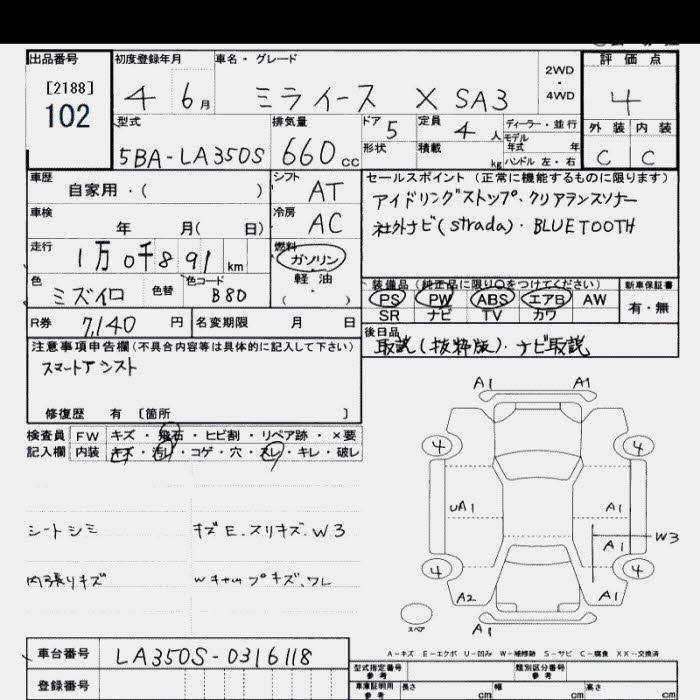 出品番号 初度登録年月 車名・グレード 2WD・4WD 評価点
[2188] 102 4 6月 ミライース X SA3 4
型式 排気量 ドア 5 定員 4人 ディーラー・並行 外装 内装
モデル年式 年
5BA-LA350S 660cc 形状 積載 kg ハンドル 左・右 C C
車歴 自家用・( ) シフト AT セールスポイント(正常に機能するものに限ります)
アイドリングストップ・クリアランスソナー
車検 年 月( 日) 冷房 AC 社外ナビ(strada)・BLUETOOTH
走行 1万0千891km 燃料 ガソリン・軽油 ( )
色 ミズイロ 色替 色コード B80
装備品(純正品に限り○をつけてください) 新車保証書
PS PW ABS エアB AW 有・無
SR ナビ TV カワ
R券 7,140円 名変期限 月 日
後日品 取説(抜粋版)・ナビ取説
注意事項申告欄(不具合内容等は具体的に記入して下さい)
スマートアシスト
修復歴 有 〔箇所 〕
検査員 FW キズ・飛石・ヒビ割・リペア跡・×要
記入欄 内装 キズ・汚れ・コゲ・穴・スレ・キレ・破レ
シートシミ キズE.スリキズ.W3
内張りキズ Wキャップキズ、ワレ
A1 A1
4 4
UA1 A1
A1 W3
4 4
A2 A1
スペア A1
A-キズ E-エクボ U-凹み W-補修跡 S-サビ C-腐食 XX-交換済
車台番号 LA350S-0316118
型式指定番号 参考 類別区分番号 参考
登録番号 車庫証明用 参考 長さ cm 幅 cm 高さ cm